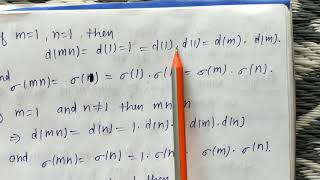 if m=1, n=1, then
d(mn) = d(1) = 1 = d(1) · d(1) = d(m) · d(m).
and σ(mn) = σ(1) = σ(1) · σ(1) = σ(m) · σ(n).
m=1 and n≠1 then mn=n
d(mn) = d(n) = 1 · d(n) = d(m) · d(n)
and σ(mn) = σ(n) = 1 · σ(n) = σ(m) · σ(n).
then